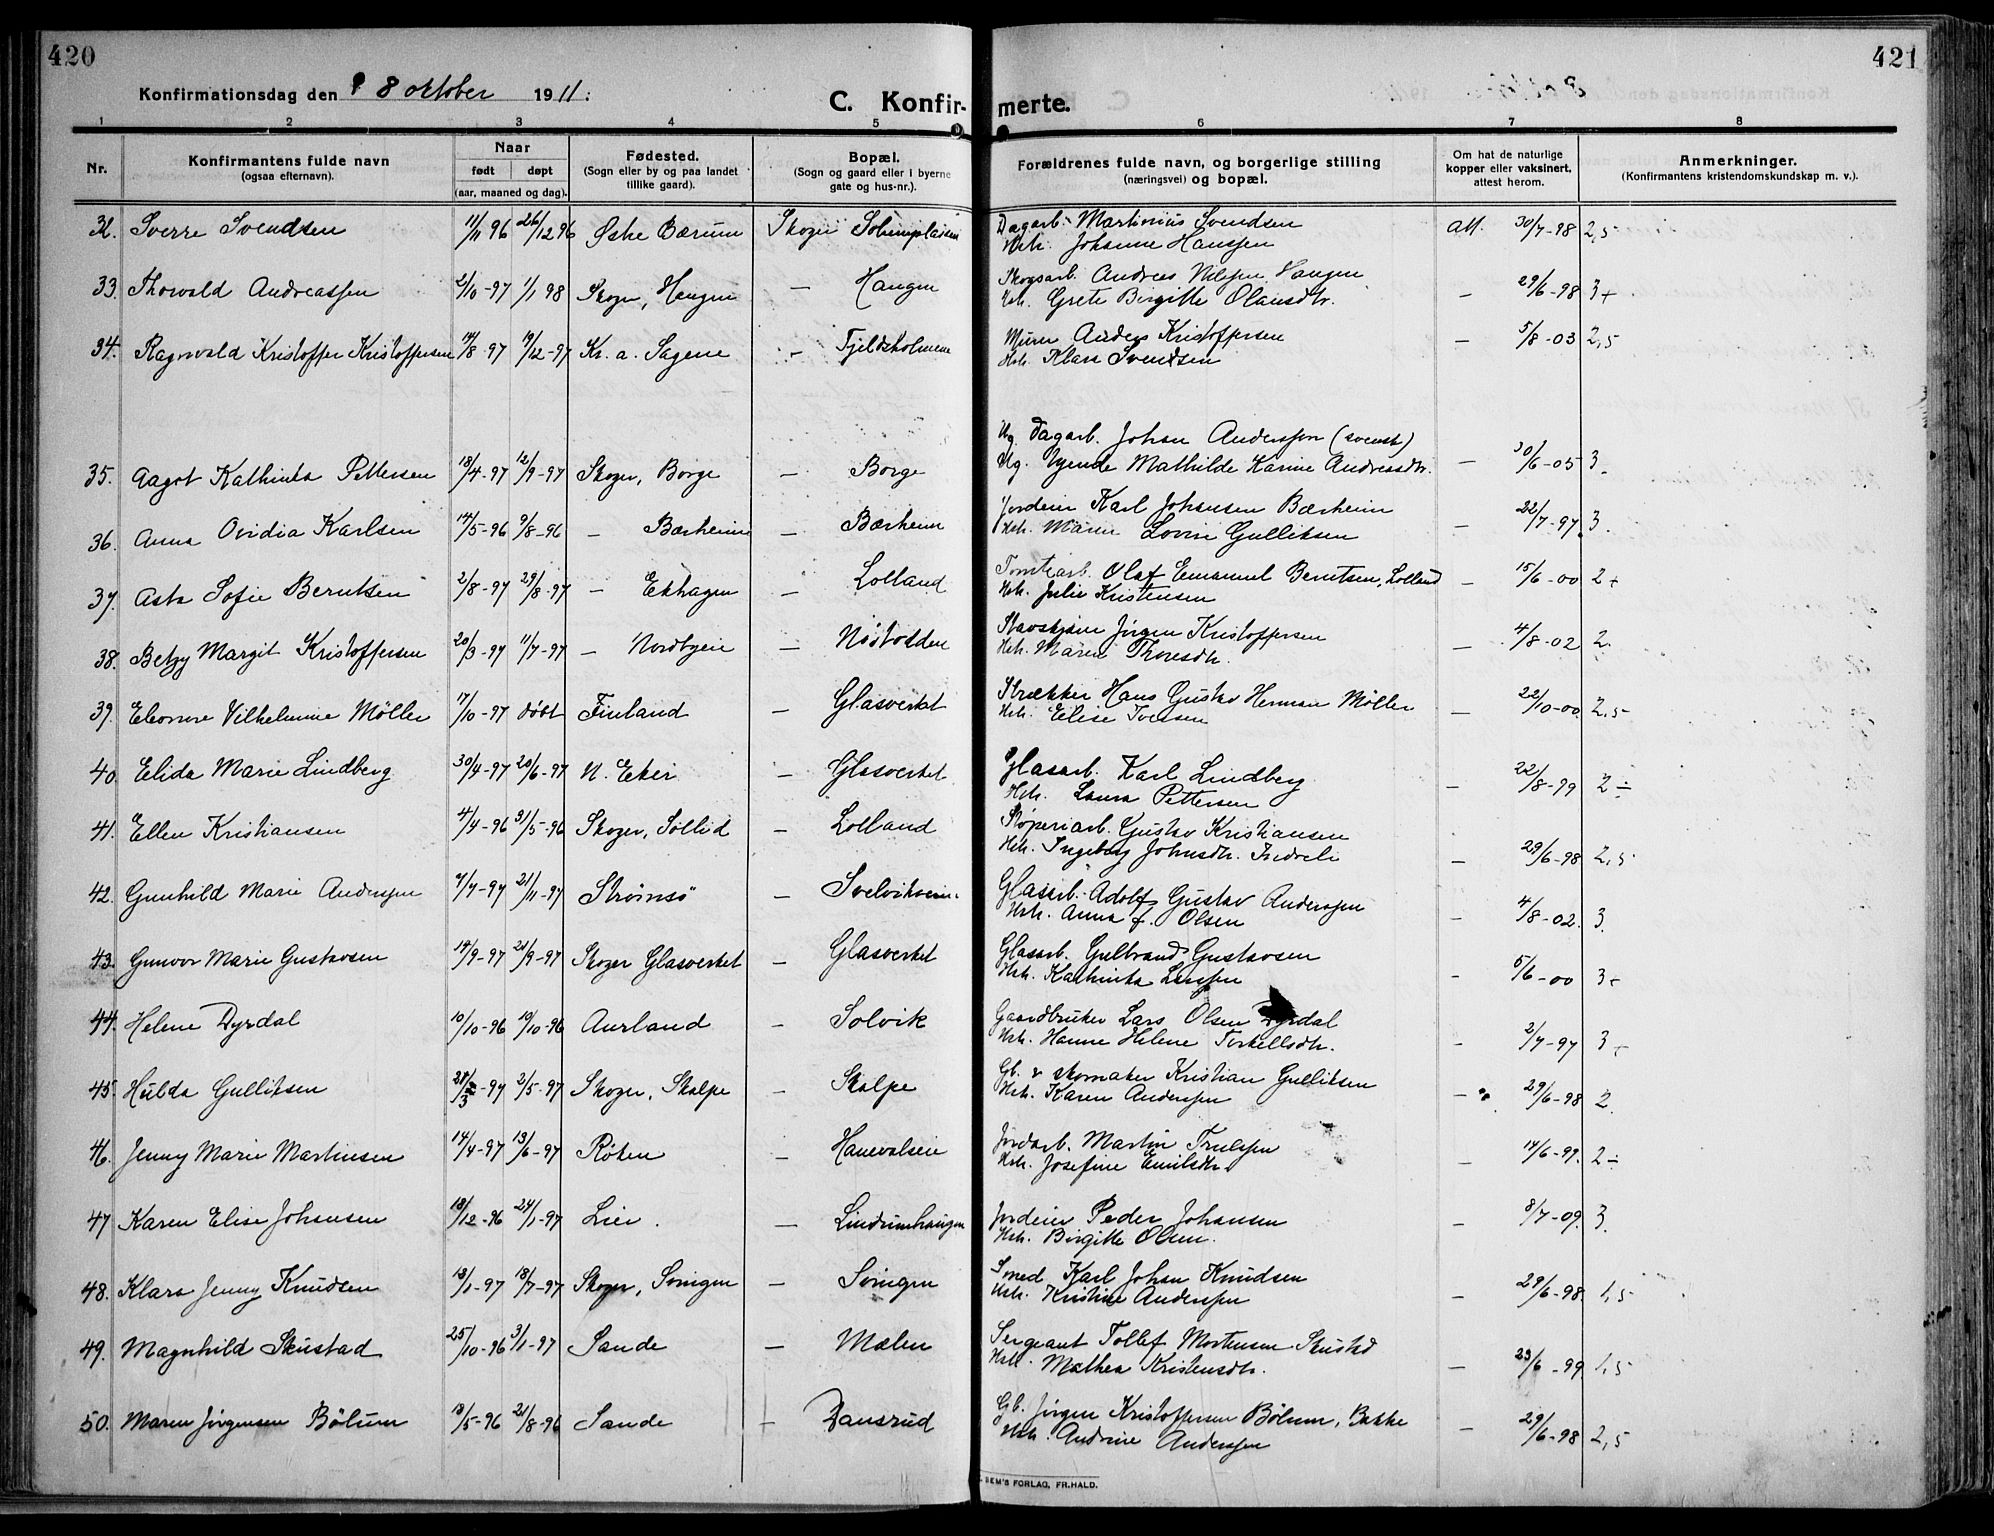 420
421
Konfirmationsdag den 8 oktober 1911.
C. Konfirmerte.
1 2 3 4 5 6 7 8
Nr.
Konfirmantens fulde navn (ogsaa efternavn).
Naar født døpt (aar, maaned og dag).
Fødested. (Sogn eller by og paa landet tillike gaard).
Bopæl. (Sogn og gaard eller i byerne gate og hus-nr.).
Forældrenes fulde navn, og borgerlige stilling (næringsvei) og bopæl.
Om hat de naturlige kopper eller vaksinert, attest herom.
Anmerkninger. (Konfirmantens kristendomskundskap m. v.).
32. Sverre Svendsen 11/11 96 26/12 96 Østre Bærum Skoger Dagarb. Martinius Svendsen att. 30/7-98 2,5
Hstr. Johanne Hanssen
33. Thorvald Andreassen 2/10-97 1/1 98 Skoger, Haugen — Haugen Skogsarb. Andreas Nilssen Haugen — 29/6-98 3+
Hstr. Grete Birgitte Olausdtr.
34. Ragnvald Kristoffer Kristoffersen 14/8-97 19/12-97 Kr.a. Sagene — Fjeldsholmene Murer Anders Kristoffersen — 5/8-03 2,5
Hstr. Klara Svendsen
Ug. Dagarb. Johan Andersson (svensk)
35. Aagot Kathinka Pettersen 18/4-97 12/9-97 Skoger, Borge — Borge Ug. Tyende Mathilde Karine Andreasdtr. — 30/6-05 3.
36. Anna Ovidia Karlsen 14/5-96 9/8-96 — Bærheim — Bærheim Jordeier Karl Johansen Bærheim — 22/7-97 3.
Hstr. Maren Lovise Gulliksen
37. Asta Sofie Berntsen 2/8-97 29/8-97 — Ekhagen — Lolland Tomtearb. Olaf Emanuel Berntsen, Lolland — 15/6-00 2+
Hstr. Julie Kristensen
38. Betzy Margit Kristoffersen 20/3-97 11/7-97 — Nordbyeie — Nøstodden Jørgen Kristoffersen — 4/8-02 2.
Hstr. Maren Thoresdtr.
39. Eleonore Vilhelmine Møller 17/10-97 døbt Finland — Glasverket Strækker Hans Gustav Herman Møller — 22/10-00. 2,5
Hstr. Elise Iversen
40. Elida Marie Lindberg 30/4-97 20/6-97 N. Eker — Glasverket Glasarb. Karl Lindberg — 22/8-99 2÷
Hstr. Laura Pettersen
41. Ellen Kristiansen 4/4-96 31/5-96 Skoger, Sollid — Lolland Støperiarb. Gustav Kristiansen
Hstr. Ingeborg Johnsdtr. — 29/6-98 2,5
42. Gunhild Marie Anderssen 7/7-97 21/11-97 Strømsø — Svelvikveien. Glasarb. Adolf Gustav Anderssen — 4/8-02. 3.
Hstr. Anna f. Olsen
43. Gunvor Marie Gustavsen 14/9-97 21/9-97 Skoger Glasverket — Glasverket Glasarb. Gulbrand Gustavsen — 5/6-00 3÷
Hstr. Kathinka Larssen
44. Helene Dyrdal 10/10-96 19/10-96 Aurland — Solvik Gaardbruker Lars Olsen Dyrdal — 2/7-97 3+
Hstr. Hanne Helene Torkellsdtr.
45. Hulda Gulliksen 28/3-97 2/5-97 Skoger, Skalpe — Skalpe Gb. & skomaker Kristian Gulliksen — 29/6-98 2.
Hstr. Karen Anderssen
46. Jenny Marie Martinsen 14/4-97 13/6-97 Røken — Hanevoldseie Jordarb. Martin Trulssen — 14/6-99. 2÷
Hstr. Josefine Emilsdtr.
47 Karen Elise Johansen 18/12-96 24/1-97 Lier. — Lindrumhaugen Jordeier Peder Johansen — 8/7-09. 3.
Hstr. Birgitte Olsen.
48. Klara Jenny Knudsen 13/1-97 18/7-97 Skoger, Svingen — Svingen Smed Karl Johan Knudsen — 29/6-98 1,5
Hstr. Kristine Anderssen
49. Magnhild Skustad 25/10-96 3/1-97 Sande — Mælen Sergeant Tollef Mortensen Skustad — 23/6-99 1,5
Hstr. Mathea Kristensdtr.
50. Maren Jørgensen Bølum 13/5-96 21/8-96 Sande — Dansrud Gb. Jørgen Kristoffersen Bølum, Bakke — 29/6-98 2,5
Hstr. Andrine Anderssen
SEM'S FORLAG, FR.HALD.